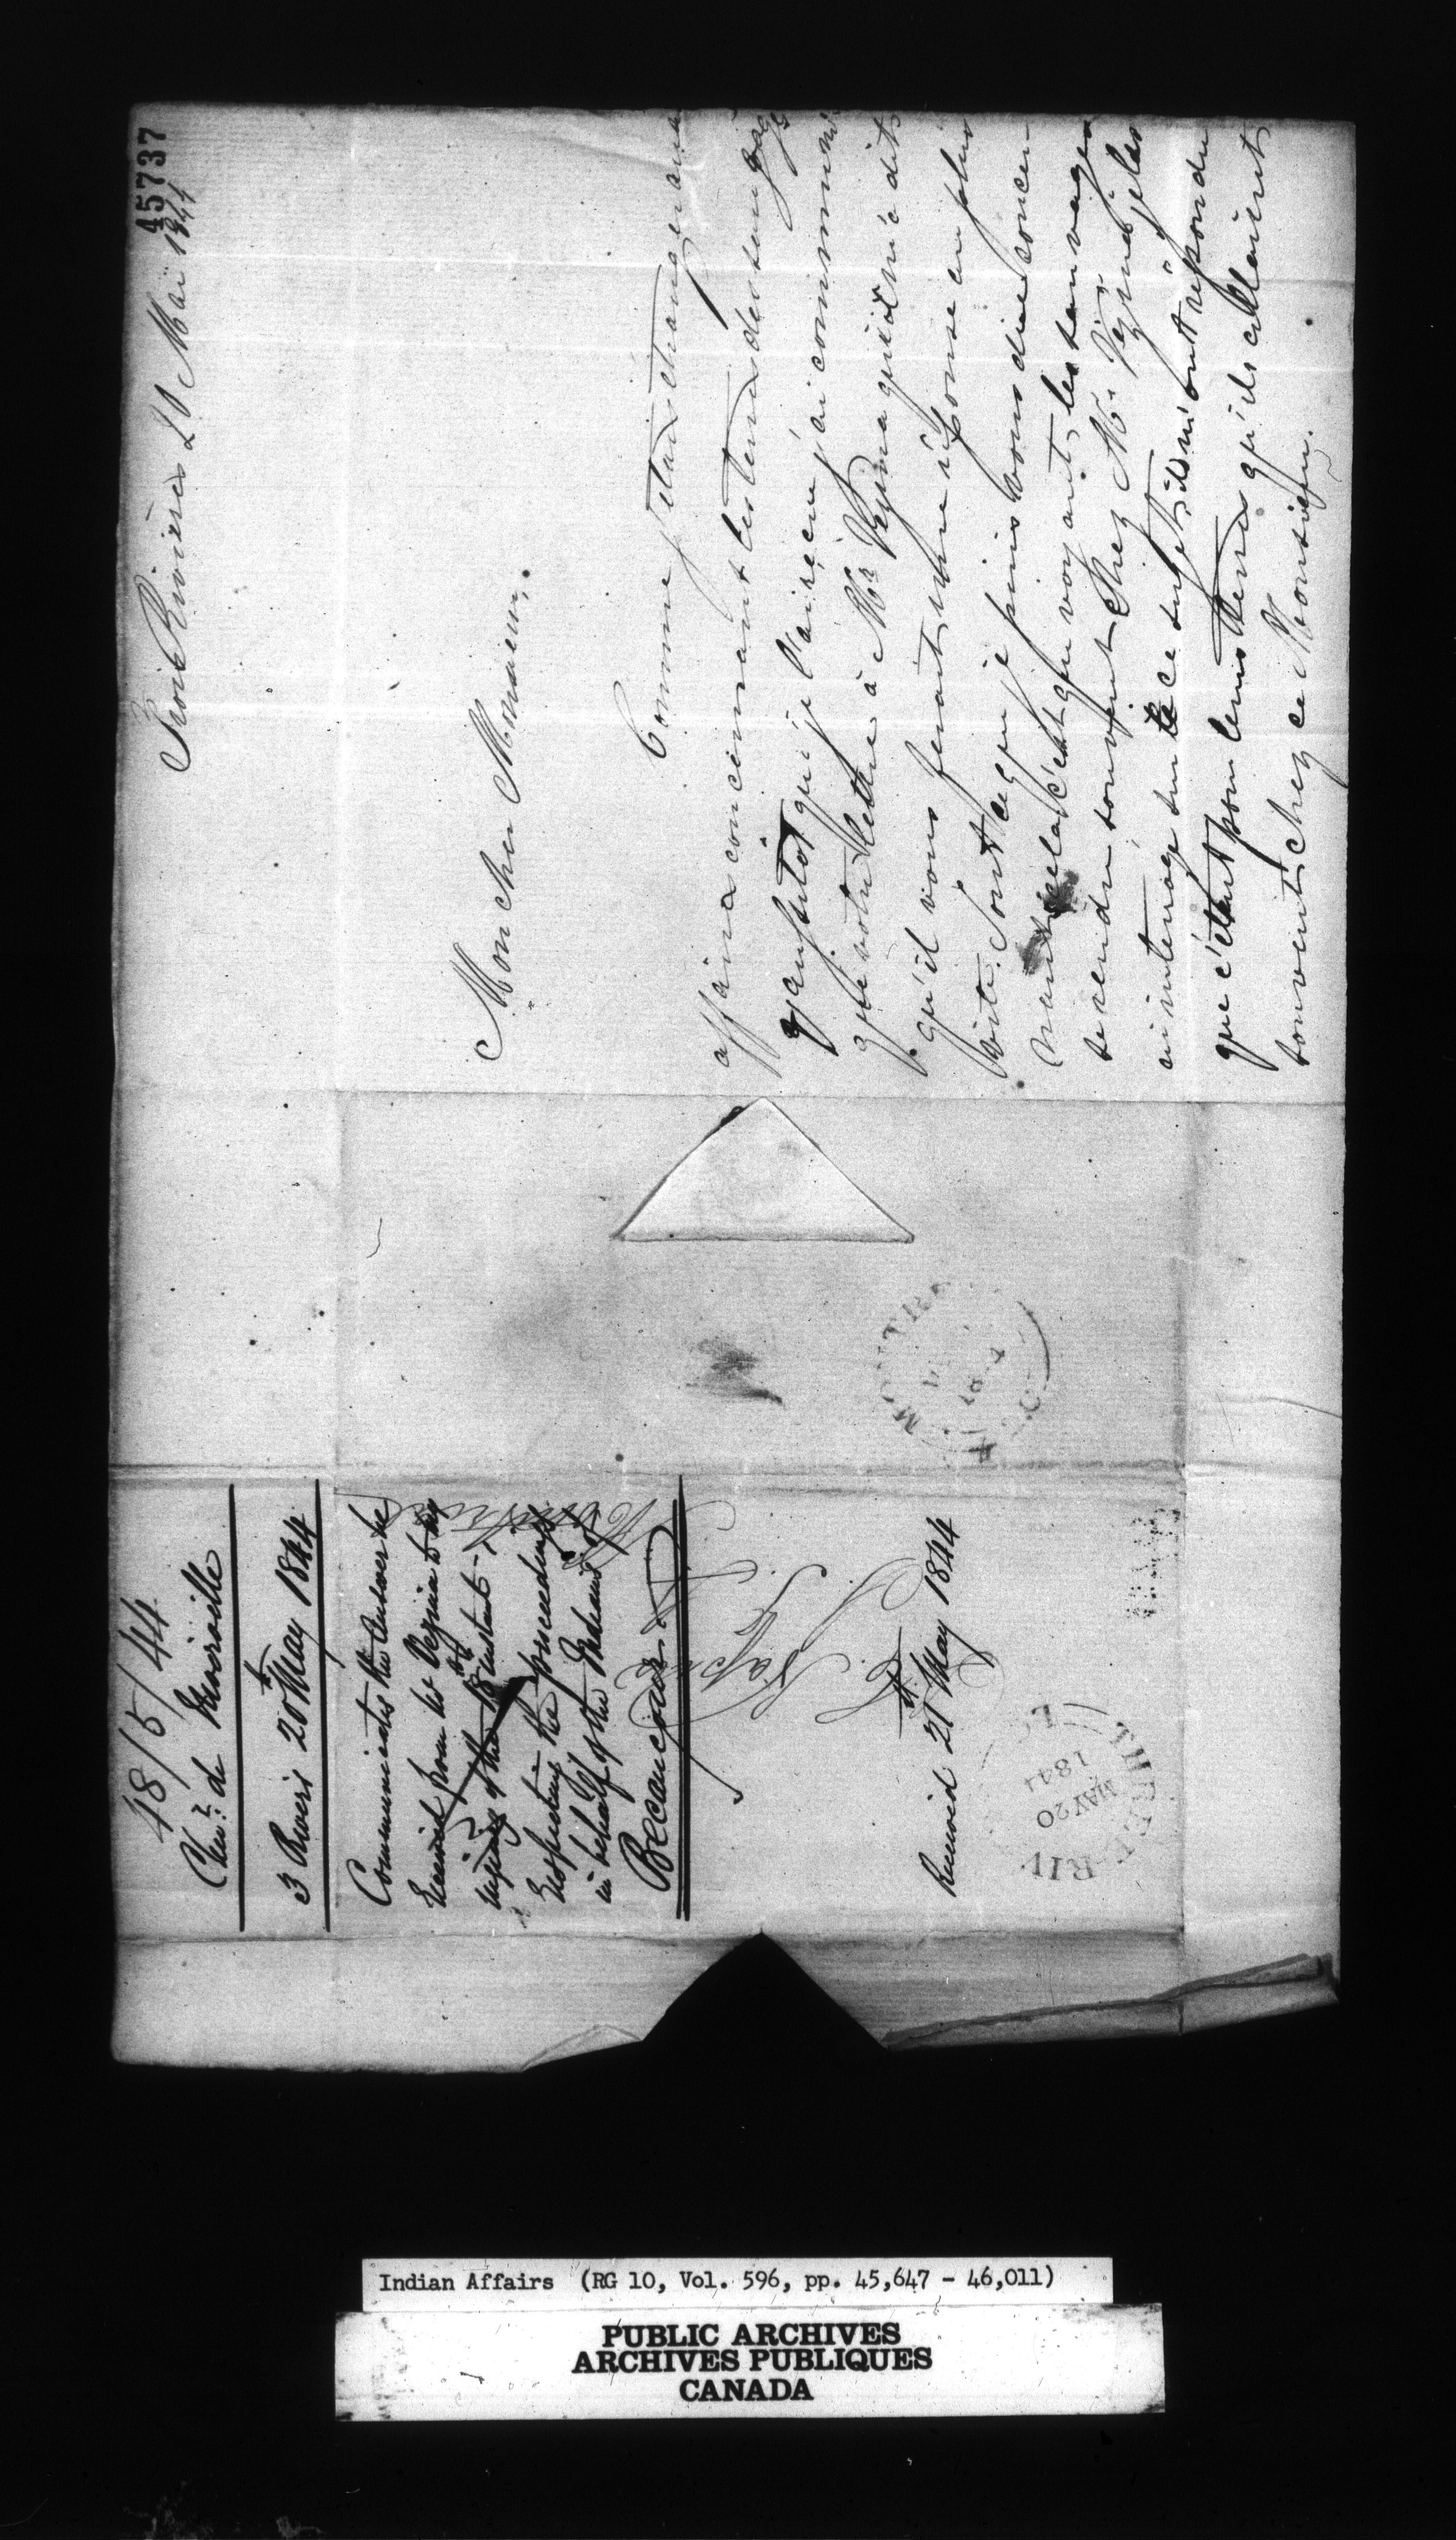 45737
Trois Rivières 20 Mai 1844
Mon cher Monsieur,
Comme j'étais étranger aux
affaires concernant les terres des sauvages
aussitôt que je l'ai reçue j'ai communi
qué votre lettre à Mr Vezina qui m'a dit
qu'il vous ferait une réponse au plus
vite. Tout ce que je puis vous dire concer
nant cela c'est que voyant les sauvages
se rendre souvent chez Mr Vezina je les
ai interrogé sur ce sujet, ils m'ont répondu
que c'était pour leurs terres qu'ils allaient
souvent chez ce Monsieur.
48/5/44
Chevr. de Niverville
3 Rivers 20th May 1844
Communicates the Answer he
received from Mr Vezina to my
of the 18th Instant
respecting the proceedings
in behalf of the Indians of
Becancour
Montreal
Napier
Received 21st May 1844
MONTREAL
THREE RIV
MAY 20
1844
L.C
Indian Affairs (RG 10, Vol. 596, pp. 45,647 - 46,011)
PUBLIC ARCHIVES
ARCHIVES PUBLIQUES
CANADA